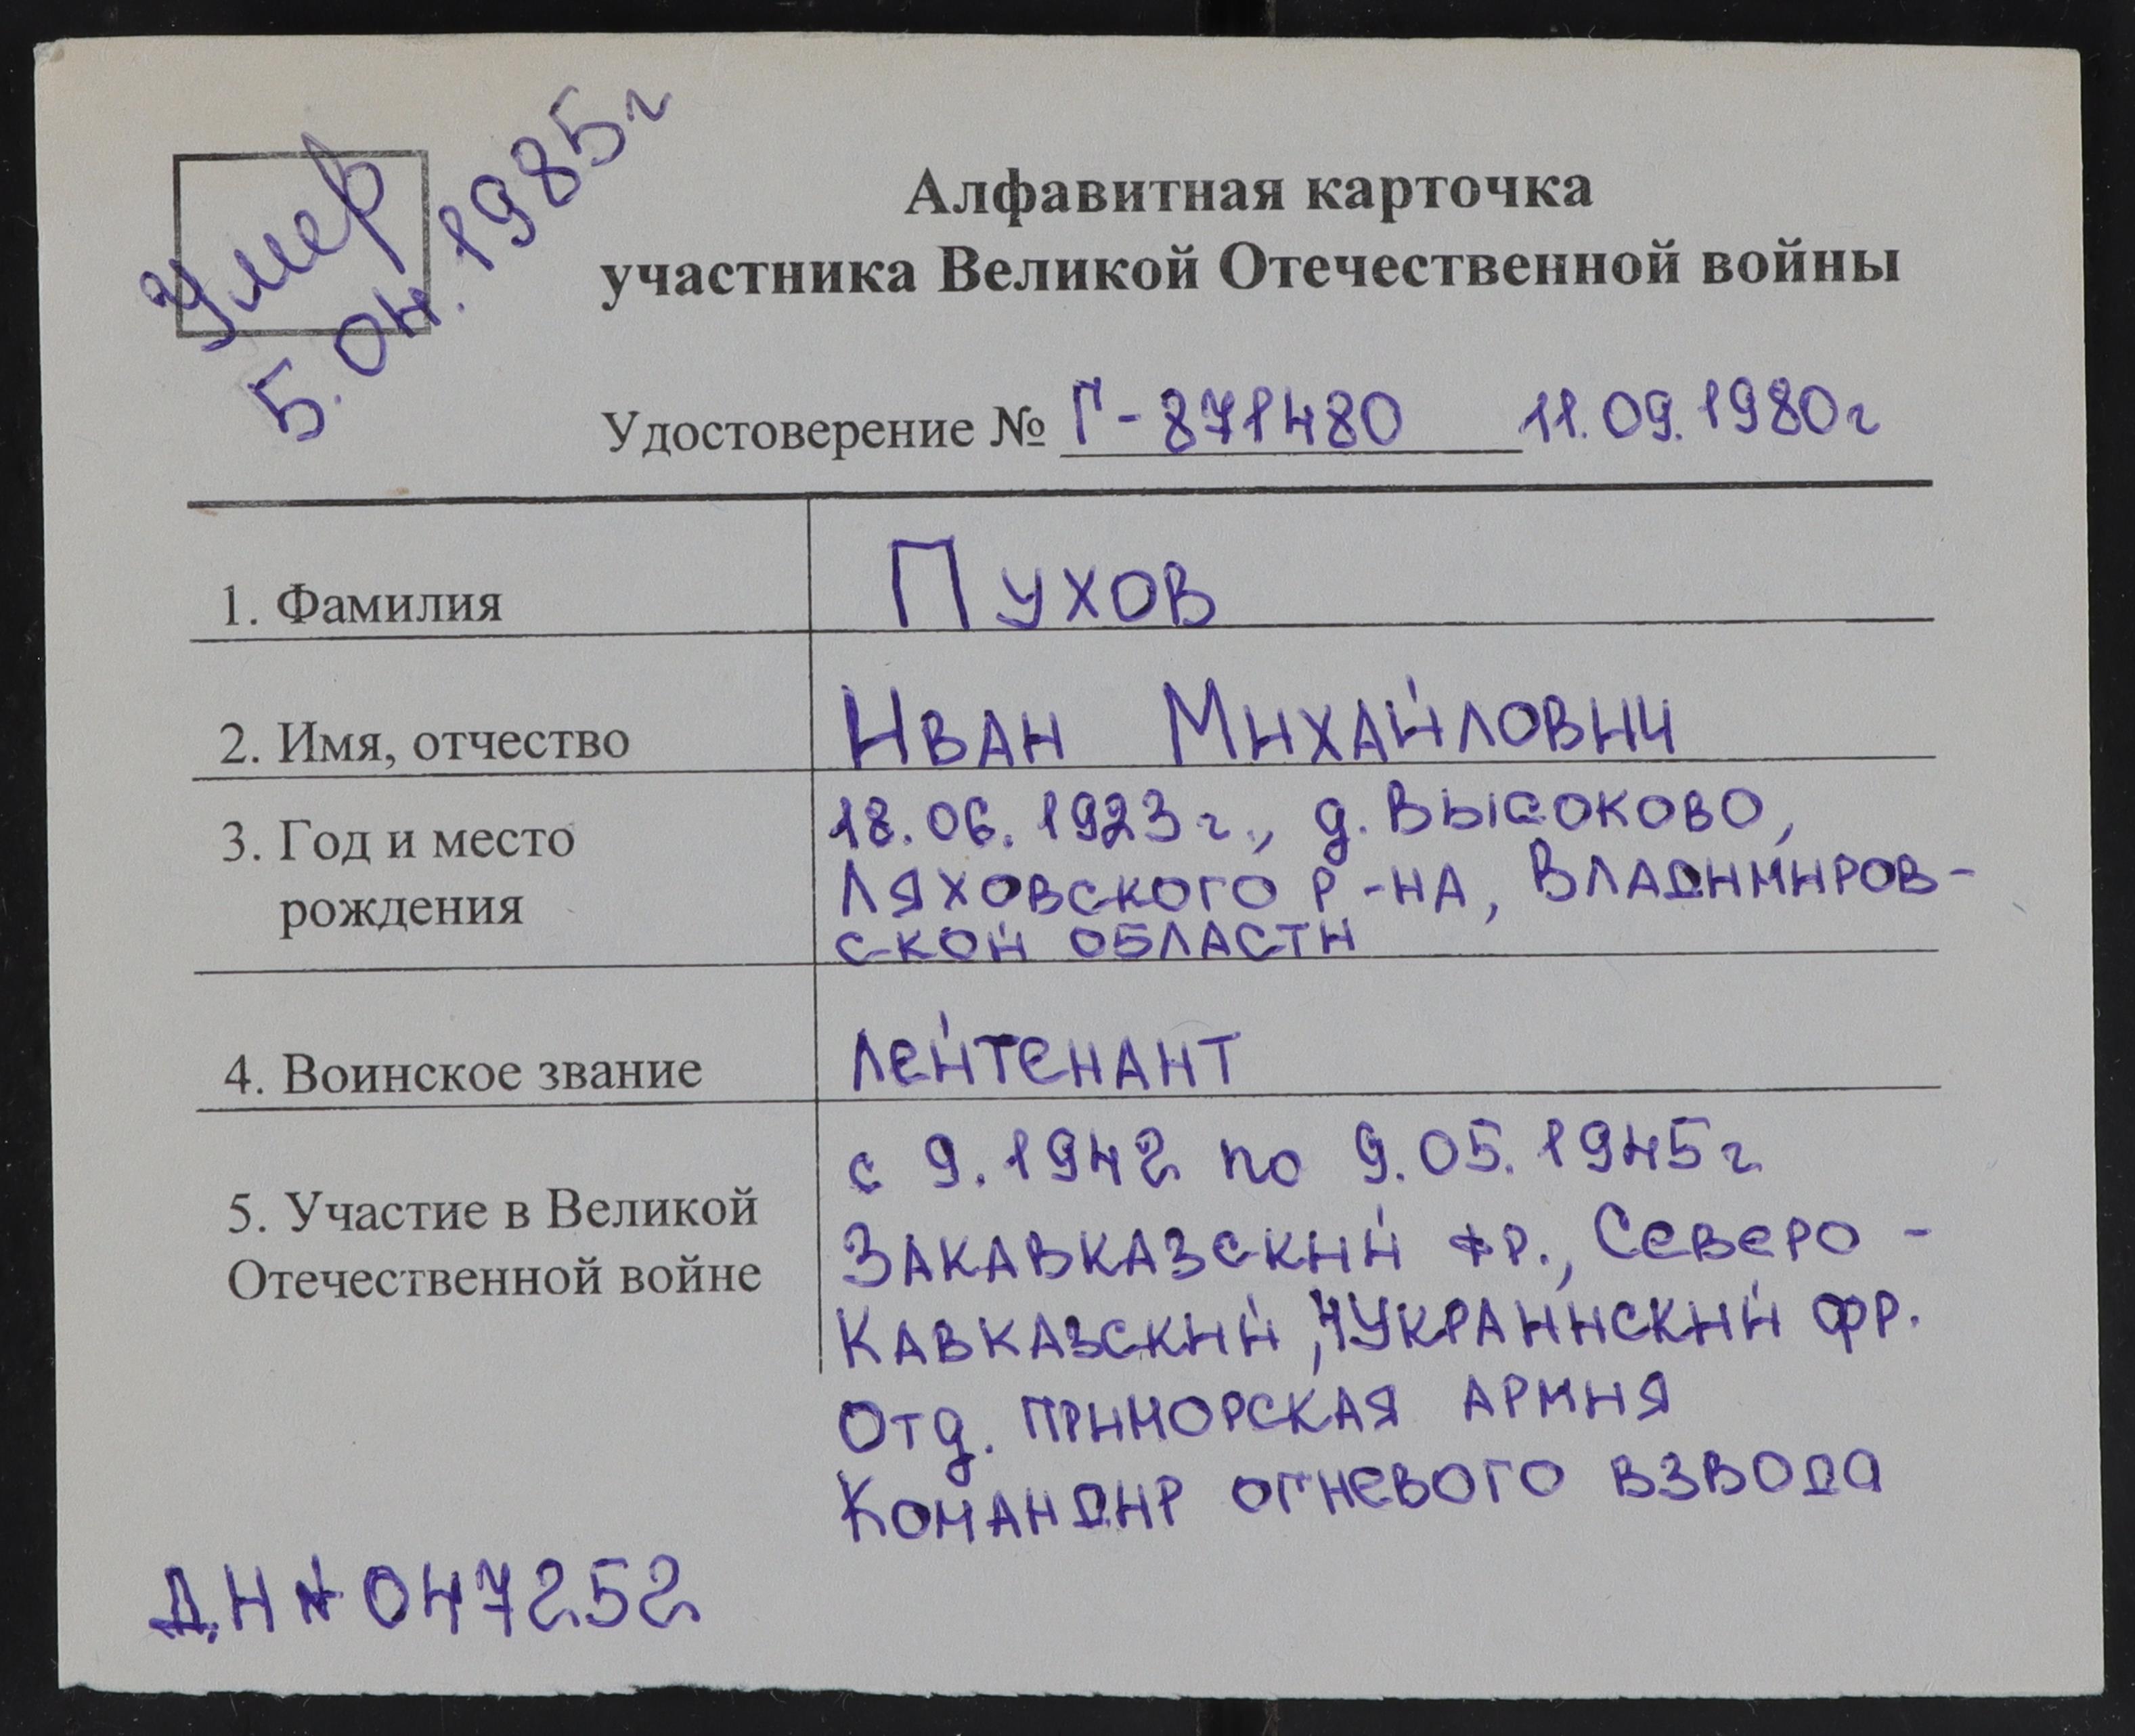 Умер
5. Ок. 1985г
Алфавитная карточка
участника Великой Отечественной войны
Удостоверение № Г-871480 11.09.1980г
1. Фамилия
Пухов
2. Имя, отчество
Иван Михайлович
3. Год и место
рождения
18.06.1923г., д. Высоково,
Ляховского р-на, Владимиров-
ской области
4. Воинское звание
лейтенант
5. Участие в Великой
Отечественной войне
с 9.1942 по 9.05.1945г
Закавказский фр., Северо-
Кавказский, 4Украинский фр.
Отд. приморская армия
Командир огневого взвода
ДН № 047252